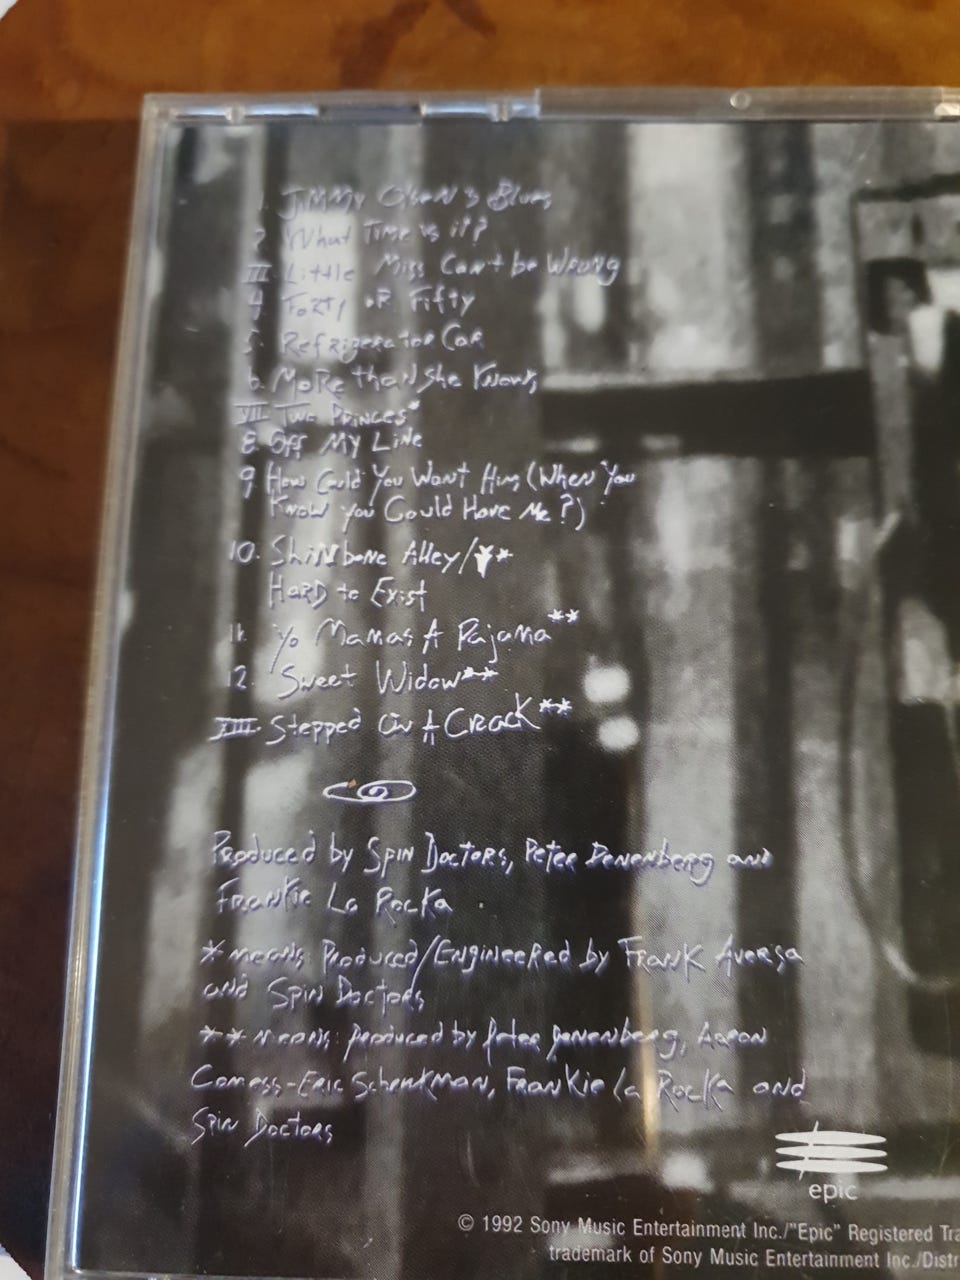 1. Jimmy Olsen's Blues
2. What Time is it?
III. Little Miss Can't be Wrong
4. Forty or Fifty
5. Refrigerator Car
6. More than She Knows
VII. Two Princes*
8. Off My Line
9. How Could You Want Him (When You
Know you Could Have Me?)
10. Shinbone Alley/**
Hard to Exist
11. Yo Mamas A Pajama**
12. Sweet Widow**
XIII. Stepped On A Crack**
Produced by Spin Doctors, Peter Denenberg and
Frankie La Rocka
*means: Produced/Engineered by Frank Aversa
and Spin Doctors
**means: produced by Peter Denenberg, Aaron
Comess-Eric Schenkman, Frankie La Rocka and
Spin Doctors
epic
© 1992 Sony Music Entertainment Inc./"Epic" Registered Tra
trademark of Sony Music Entertainment Inc./Distr